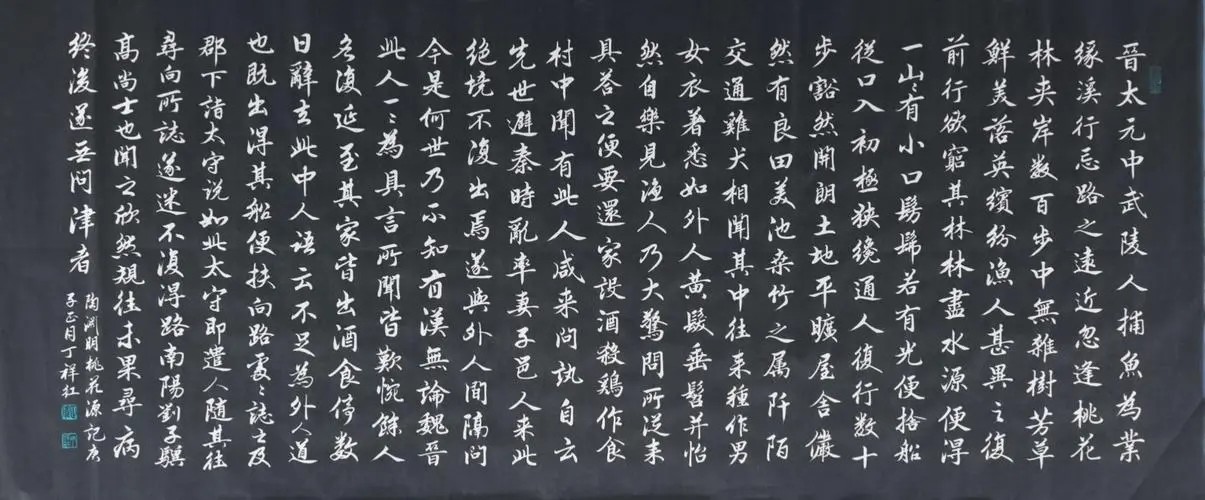 晉太元中武陵人捕魚為業
緣溪行忘路之遠近忽逢桃花
林夾岸数百步中無雜樹芳草
鮮美落英繽紛漁人甚異之復
前行欲窮其林林盡水源便得
一山〻有小口髣髴若有光便捨船
從口入初極狹纔通人復行数十
步豁然開朗土地平曠屋舍儼
然有良田美池桑竹之属阡陌
交通雞犬相聞其中往来種作男
女衣著悉如外人黃髮垂髫并怡
然自樂見漁人乃大驚問所從来
具答之便要還家設酒殺鷄作食
村中聞有此人咸来問訊自云
先世避秦時亂率妻子邑人来此
絕境不復出焉遂與外人間隔問
今是何世乃不知有漢無論魏晉
此人一〻為具言所聞皆歎惋餘人
各復延至其家皆出酒食停数
日辭去此中人語云不足為外人道
也既出得其船便扶向路處〻誌之及
郡下詣太守説如此太守即遣人隨其往
尋向所誌遂迷不復得路南陽劉子驥
高尚士也聞之欣然規往未果尋病
終後遂無問津者
陶淵明桃花源記庚
子正月丁祥红